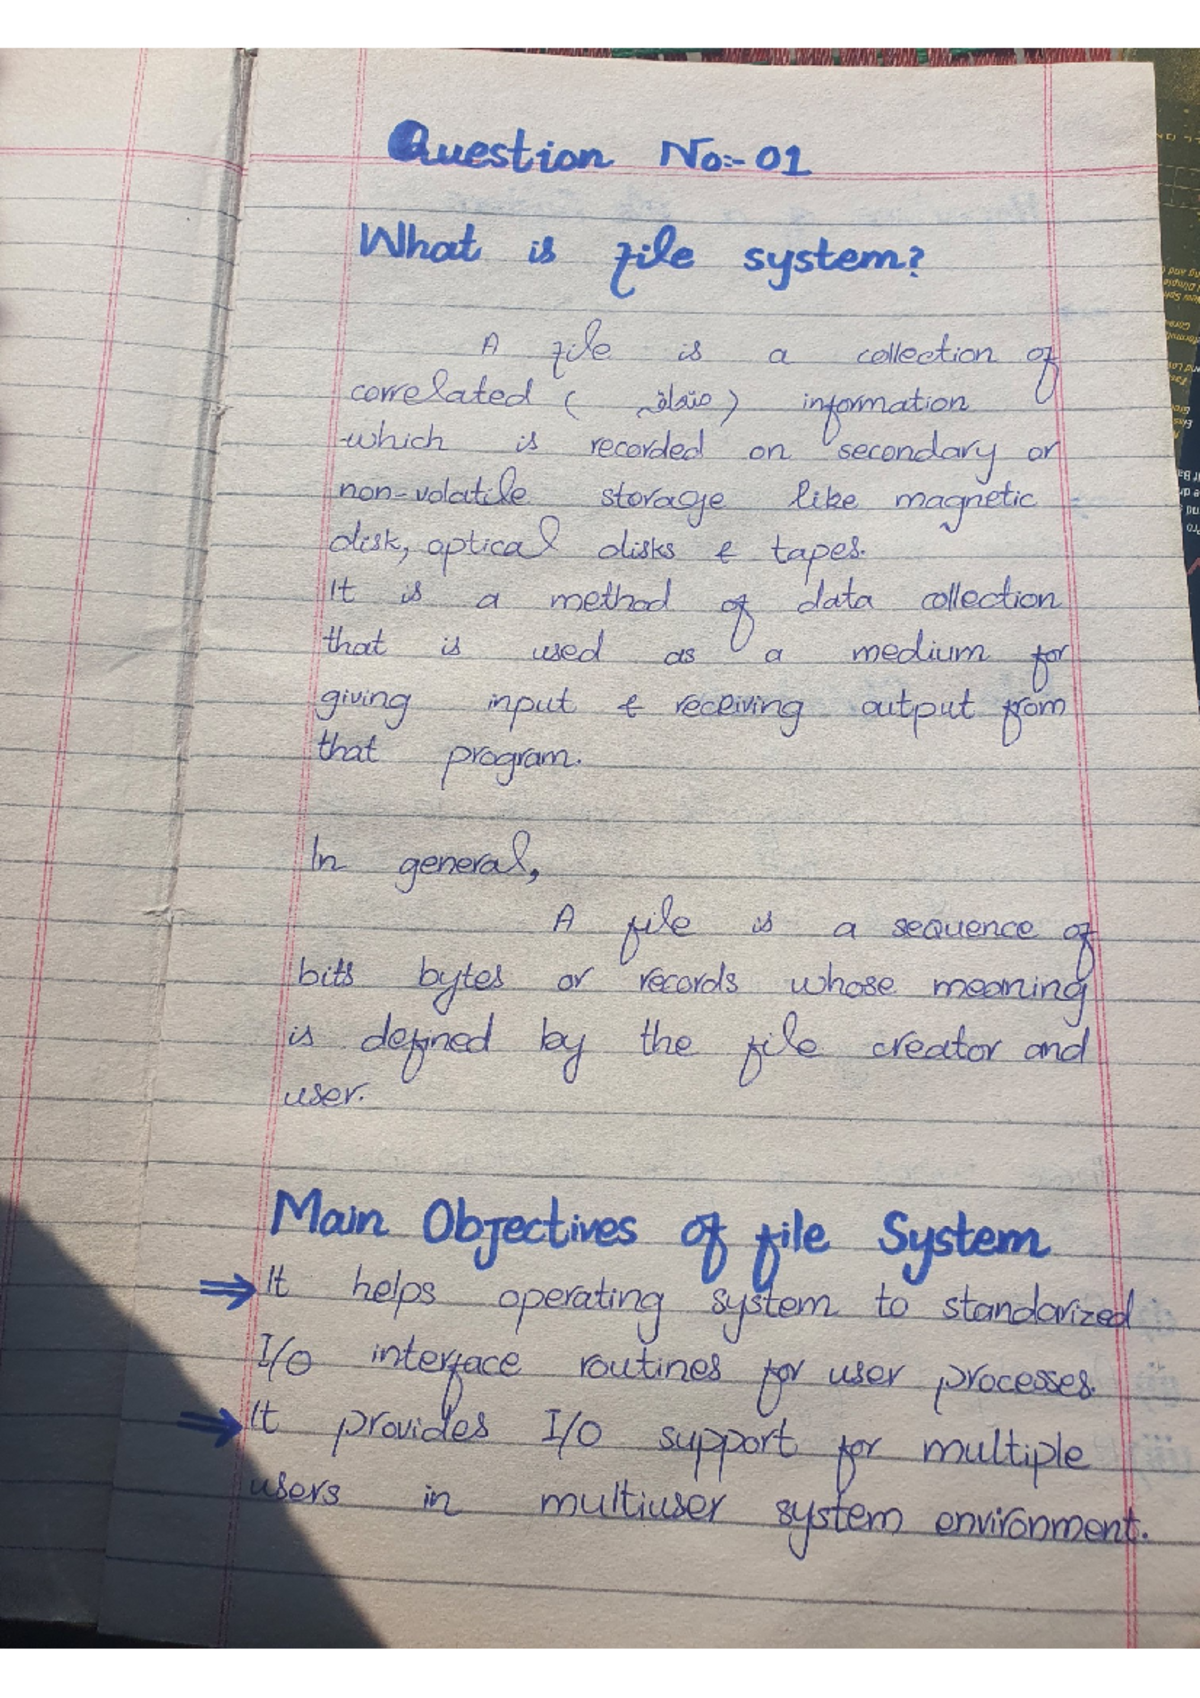 Question No:- 01
What is file system?
A file is a collection of
correlated ( متعلق ) information
which is recorded on secondary or
non-volatile storage like magnetic
disk, optical disks & tapes.
It is a method of data collection
that is used as a medium for
giving input & receiving output from
that program.
In general,
A file is a sequence of
bits bytes or records whose meaning
is defined by the file creator and
user.
Main Objectives of file System
⇒ It helps operating system to standarized
I/O interface routines for user processes.
⇒ It provides I/O support for multiple
users in multiuser system environment.